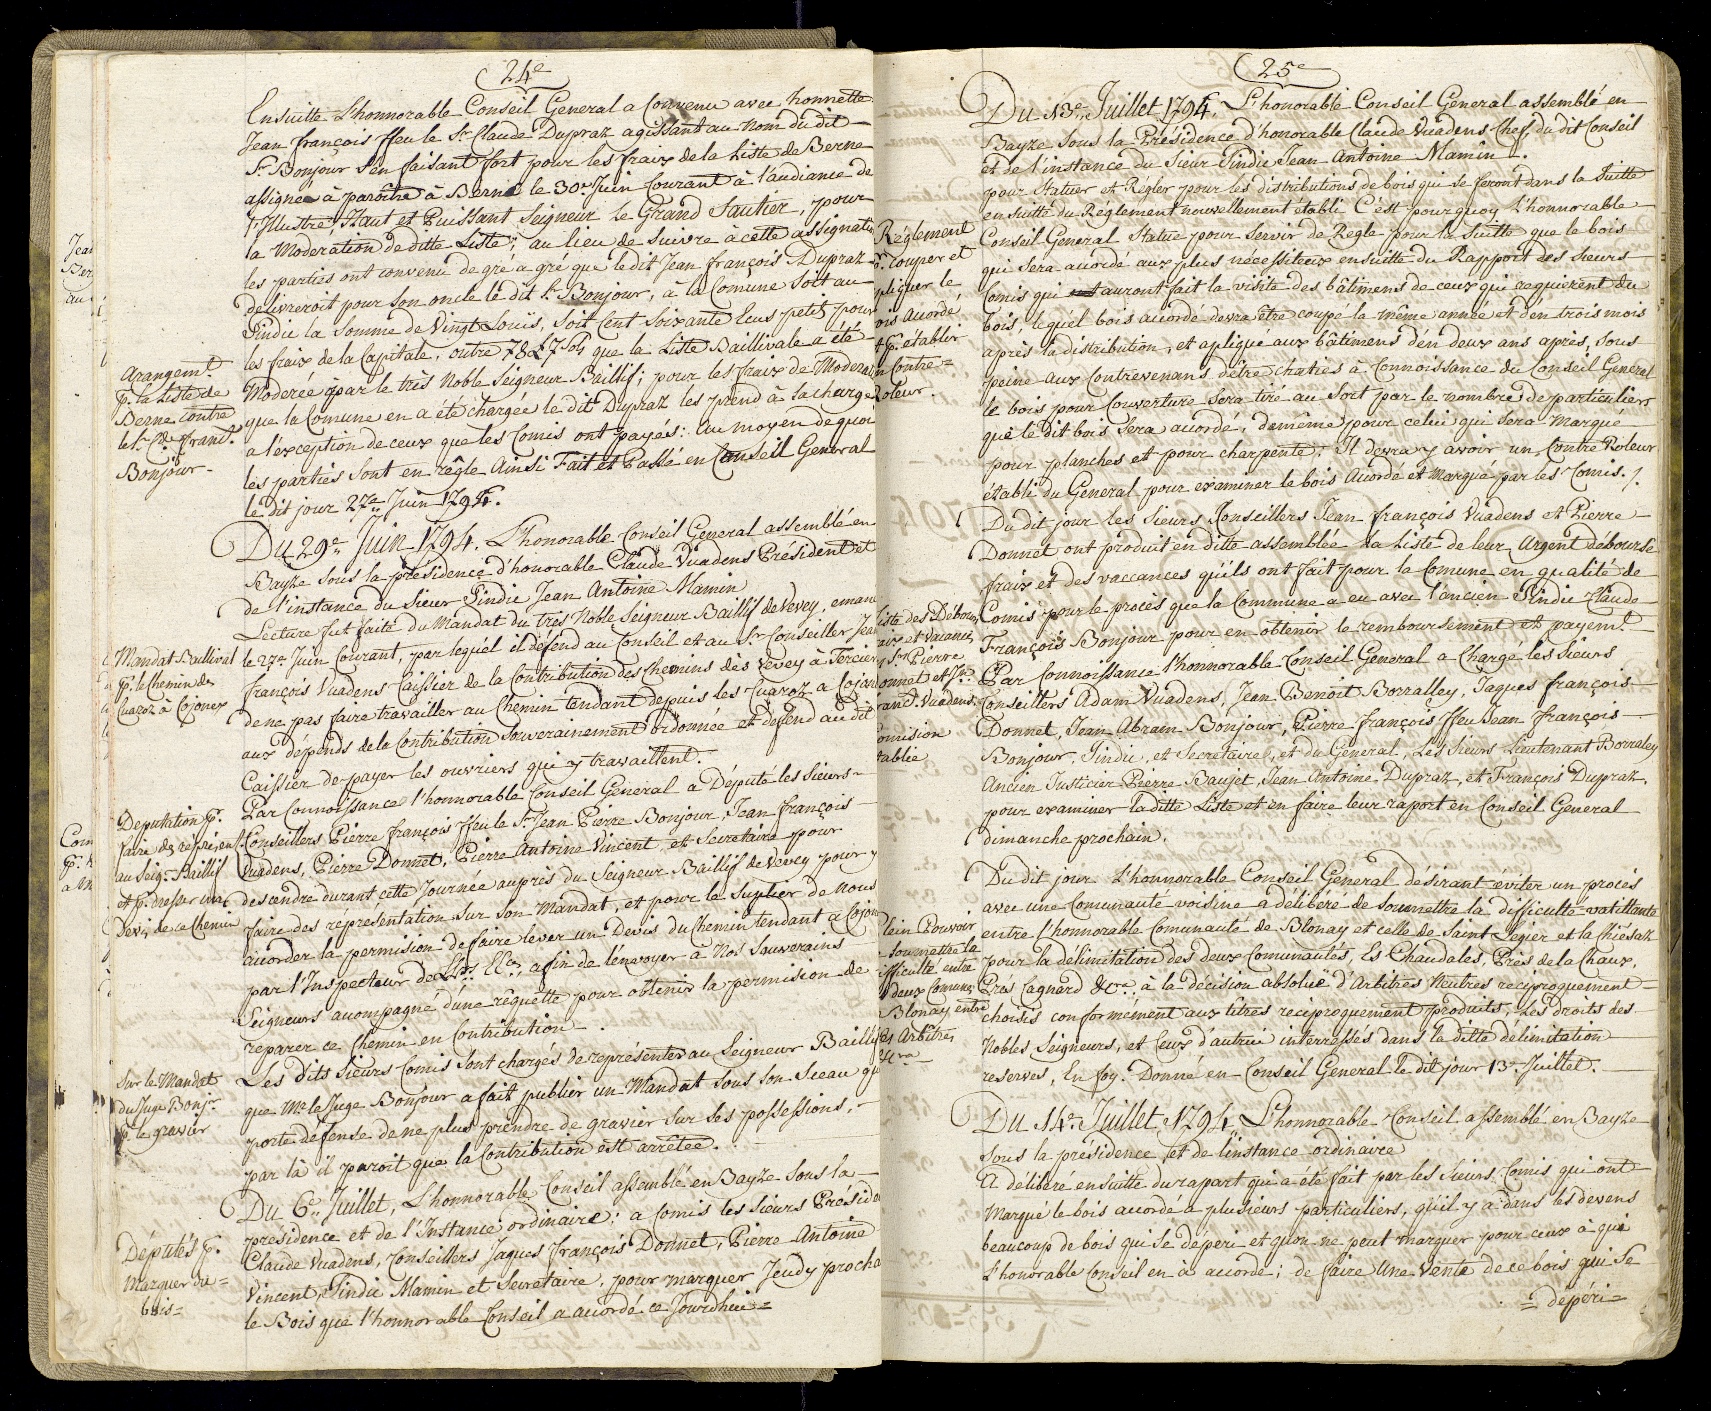 24e
Ensuitte L'honnorable Conseil General a Convenu avec honnette
Jean françois ffeu le Sr Claude Dupraz agissant au Nom du dit
Sr Bonjour s'en faisant fort pour les fraix de la Liste de Berne
assignée à paroitre à Berne le 30e Juin Courant à l'audiance de
l'Illustre, Haut et Puissant Seigneur Le Grand Sautier, pour
la Moderation de ditte Liste; au lieu de Suivre à cette assignatin
les parties ont convenu de gré a gré que le dit Jean françois Dupraz
delivreroit pour son oncle le dit Sr Bonjour, à la Comune soit au
Sindic la Somme de Vingt Loüis, Soit Cent Soixante Ecus petit pour
les fraix de la Capitale, outre 78 £ 7 sols que la Liste Baillivale a été
Arangemt.
pr. la Liste de
Berne Contre
le Sr Cde franc.
Bonjour
Moderée par le très Noble Seigneur Baillif; pour les fraix de Moderat
que la Comune en a été chargée le dit Dupraz les prend à la charge
a l'exception de ceux que les Comis ont payés: au moyen de quoi
les parties sont en régle Ainsi Fait et Passé en Conseil General
le dit jour 27e Juin 1794.
Du 29e Juin 1794. L'honorable Conseil General assemblé en
Bayze sous la présidence d'honorable Claude Vuadens Président et
de l'instance du Sieur Sindic Jean Antoine Mamin
Lecture fut faite du Mandat du tres Noble Seigneur Baillif de Vevey, emané
Mandat Baillival
pr. le Chemin des
Cuaroz à Cojonex
le 27e Juin Courant, par lequél il défend au Conseil et au Sr Conseiller Jean
françois Vuadens Caissier de la Contribution des Chemins dès Vevey à Tercier
de ne pas faire travailler au Chemin tendant depuis les Cuaroz a Cojon
aux dépends de la Contribution Souverainement ordonnée et défend au dit
Caissier de payer les ouvriers qui y travaillent.
Par Connoissance l'honnorable Conseil General a Député les Sieurs
Deputation pr.
faire des réprésent.
au Seigr. Baillif
et pr. dresser un
Devis de ce Chemin
Conseillers Pierre françois ffeu le Sr Jean Pierre Bonjour, Jean françois
Vuadens, Pierre Donnet, Pierre Antoine Vincent et Secretaire pour
descendre durant cette Journée auprès du Seigneur Baillif de Vevey pour y
faire des réprésentation sur son Mandat, et pour le suplier de nous
acorder la permision de faire lever un Devis du Chemin tendant a Cojon
par l'Inspecteur de LL: EEces, afin de l'envoyer à Nos Souverains
Seigneurs acompagné d'une rêquette pour obtenir la permision de
reparer ce Chemin en Contribution.
Sur le Mandat
du Juge Bonjr.
pr. le gravier
Les dits Sieurs Comis sont chargés de représenter au Seigneur Baillif
que Mr le Juge Bonjour a fait publier un Mandat sous son Sceau qu
porte défense de ne plus prendre de gravier sur ses possessions,
par là il paroit que la Contribution est arrêtée.
Du 6e Juillet, L'honnorable Conseil assemblé en Bayze sous la
présidence et de l'Instance ordinaire: a Comis les Sieurs Presida
Députés pr.
Marquer du
bois
Claude Vuadens, Conseillers Jaques françois Donnet, Pierre Antoine
Vincent, Sindic Mamin et Secretaire, pour marquer Jeudy procha
le Bois que l'honnorable Conseil a acordé ce Jourdhui
25e
Du 13e Juillet 1794, L'honorable Conseil General assemblé en
Bayze sous la Présidence d'honorable Claude Vuadens Chef du dit Conseil
et de l'instance du Sieur Sindic Jean Antoine Mamin.
pour Statuer et Régler pour les distributions de bois qui se feront dans la Suitte
ensuitte du Réglement nouvellement établi C'est pourquoy L'honnorable
Réglement
pr. Couper et
pliquer le
ois Acordé
t pr. établir
n Contre
Roleur.
Conseil General Statue pour Servir de Regle pour la Suitte que le bois
qui sera acordé aux plus nécessiteux ensuitte du Rapport des Sieurs
Comis qui auront fait la visite des bâtimens de ceux qui requierent du
bois, lequel bois acordé devra être coupé la même année et d'en trois mois
après la distribution, et apliqué aux bâtimens d'en deux ans après, sous
peine aux Contrevenans d'être chatiés à Connoissance du Conseil General
le bois pour Couverture sera tiré au Sort par le nombre de particuliers
que le dit bois sera acordé; de même pour celui qui sera Marqué
pour planches et pour charpente: Il devra y avoir un Contre Roleur
établi du General pour examiner le bois Acordé et Marqué par les Comis.
Du dit jour les Sieurs Conseillers Jean françois Vuadens et Pierre
Donnet ont produit en ditte assemblée la Liste de leur Argent débourse
fraix et des vaccances qu'ils ont fait pour la Comune en qualité de
Liste des Débour
aix et Vacances
s Sr Pierre
onnet et Jn.
ranc. Vuadens.
omision
tablie
Comis pour le procès que la Commune a eu avec l'ancien Sindic Claude
François Bonjour pour en obtenir le remboursement et payemt.
Par Connoissance l'honnorable Conseil General a Chargé les Sieurs
Conseillers Adam Vuadens, Jean Benoit Borralley, Jaques françois
Donnet, Jean Abram Bonjour, Pierre françois ffeu Jean françois
Bonjour, Sindic, et Secretaire, et du General, les Sieurs Lieutenant Borraley
Ancien Justicier Pierre Baujet, Jean Antoine Dupraz, et François Dupraz,
pour examiner la ditte Liste et en faire leur raport en Conseil General
dimanche prochain.
Du dit jour L'honnorable Conseil General désirant éviter un procés
avec une Comunauté voisine a délibéré de soumettre la difficulté vatillante
lein Pouvoir
soumettre la
ifficulté entre
deux Comunes
Blonay entre
es Arbitres
entre l'honnorable Comunauté de Blonay et celle de Saint Legier et la Chiésaz
pour la délimitation des deux Comunautés, Es Chaudales, Près de la Chaux,
Cras Cagnard &ca. à la décision absolüe d'Arbitres Neutres reciproquement
choisis conformément aux titres reciproquement produits, Les droits des
Nobles Seigneurs, et Ceux d'autrui interressés dans la ditte délimitation
reserves, En foy. Donné en Conseil General le dit jour 13e Juillet.
Du 14e Juillet 1794 L'honnorable Conseil assemblé en Bayze
sous la présidence et de l'instance ordinaire
A délibéré ensuitte du raport qui a été fait par les Sieurs Comis qui ont
Marqué le bois acordé a plusieurs particuliers, qu'il y a dans les devens
beaucoup de bois qui se déperi et qu'on ne peut marquer pour ceux à qui
L'honorable Conseil en à acordé; de faire Une Vente de ce bois qui se
= dépéri =